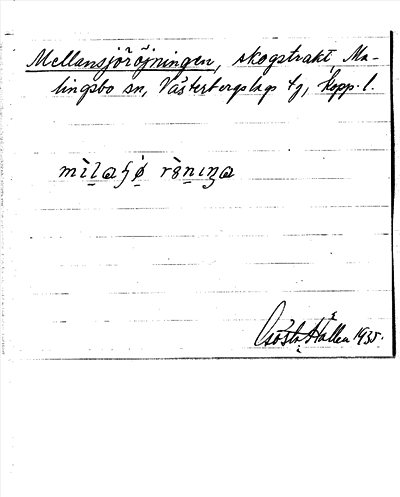 Mellansjöröjningen, skogstrakt, Ma-
lingsbo sn, Västerbergslags tg, Kopp. l.
Gösta Hallen 1935.